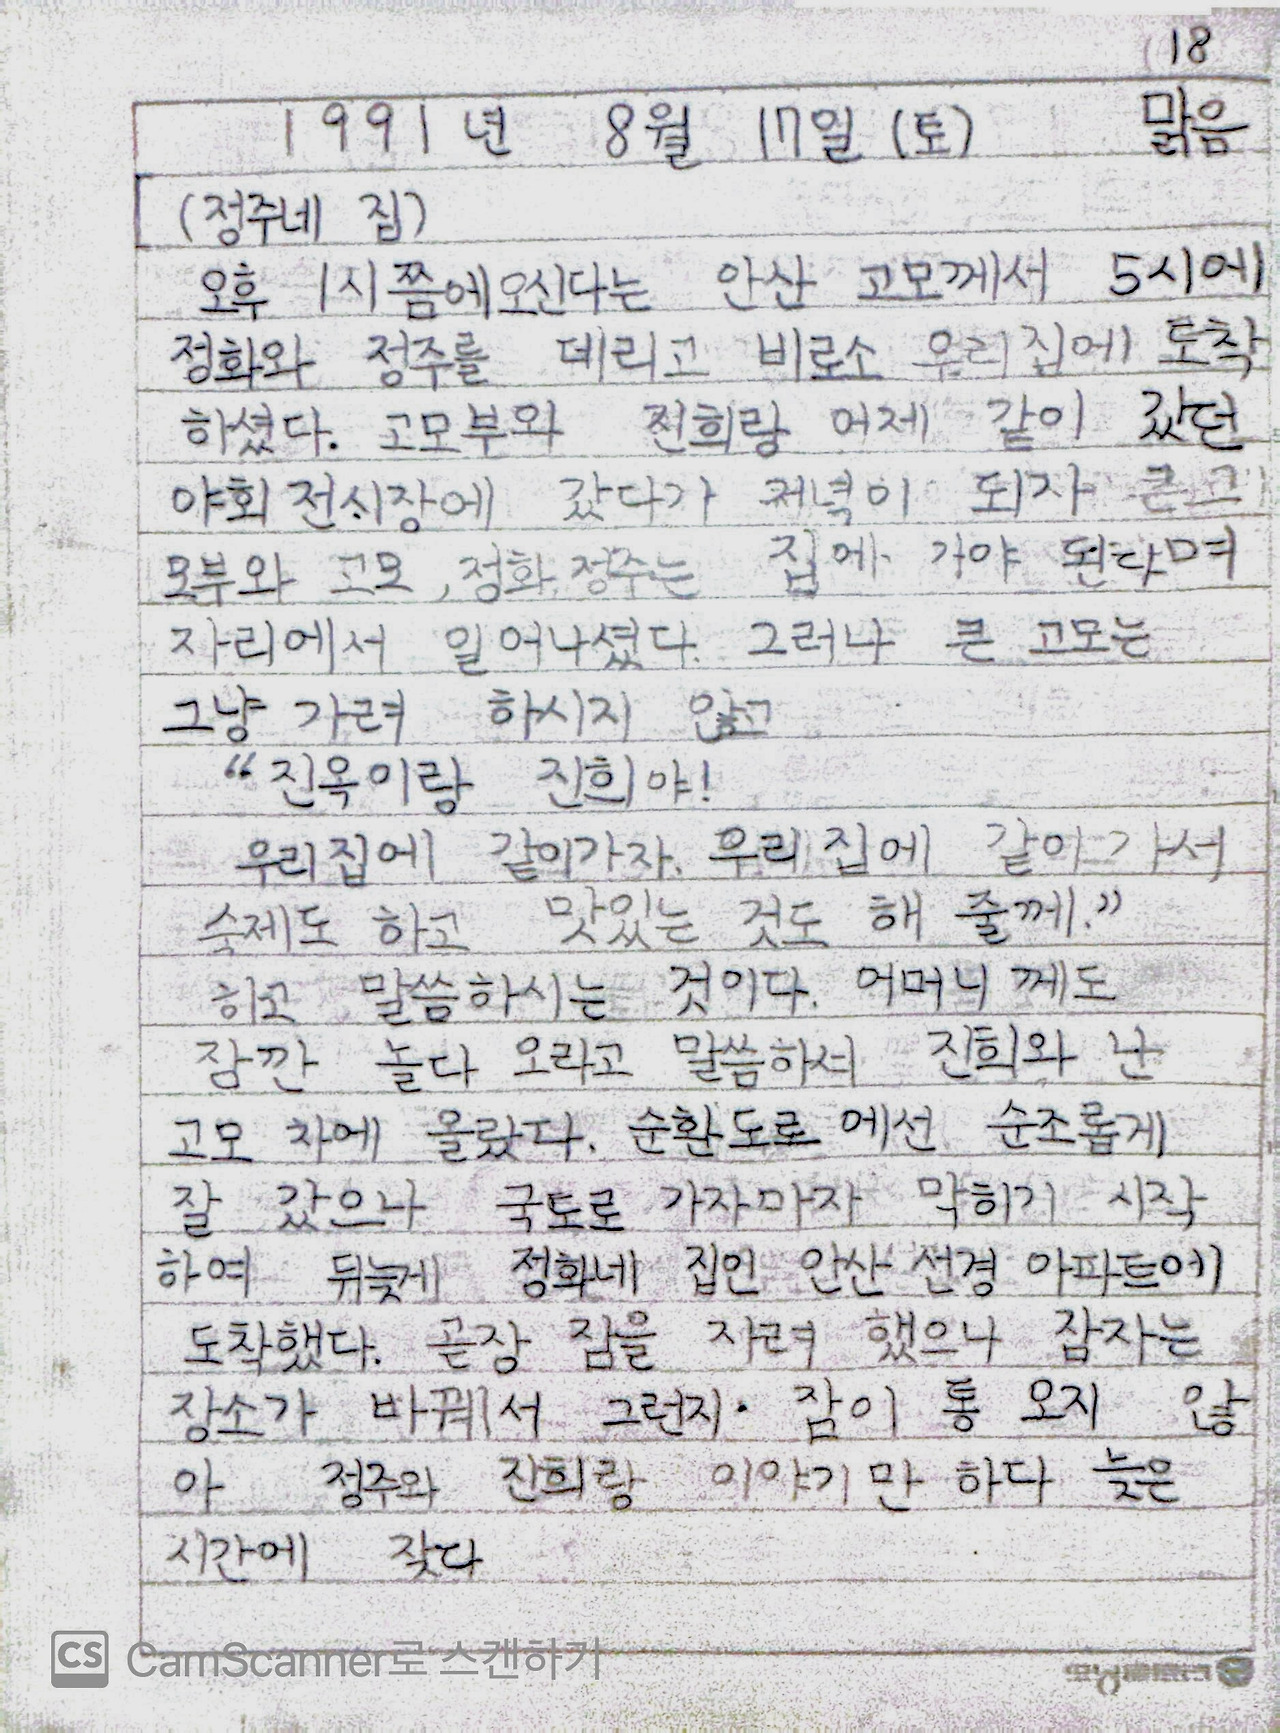 18
1991년 8월 17일 (토) 맑음
(정주네 집)
오후 1시쯤에오신다는 안산 고모께서 5시에
정화와 정주를 데리고 비로소 우리집에 도착
하셨다. 고모부와 진희랑 어제 같이 갔던
야회전시장에 갔다가 저녁이 되자 큰고
모부와 고모, 정화, 정주는 집에 가야 된다며
자리에서 일어나셨다. 그러나 큰 고모는
그냥 가려 하시지 않고
“진옥이랑 진희야!
우리집에 같이가자. 우리집에 같이가서
숙제도 하고 맛있는 것도 해 줄께.”
하고 말씀하시는 것이다. 어머니께도
잠깐 놀다 오라고 말씀하셔 진희와 난
고모 차에 올랐다. 순환도로에선 순조롭게
잘 갔으나 국토로 가자마자 막히기 시작
하여 뒤늦게 정화네 집인 안산 선경 아파트에
도착했다. 곧장 잠을 자려 했으나 잠자는
장소가 바꿔서 그런지 잠이 통 오지 않
아 정주와 진희랑 이야기만 하다 늦은
시간에 잦다
CS CamScanner로 스캔하기